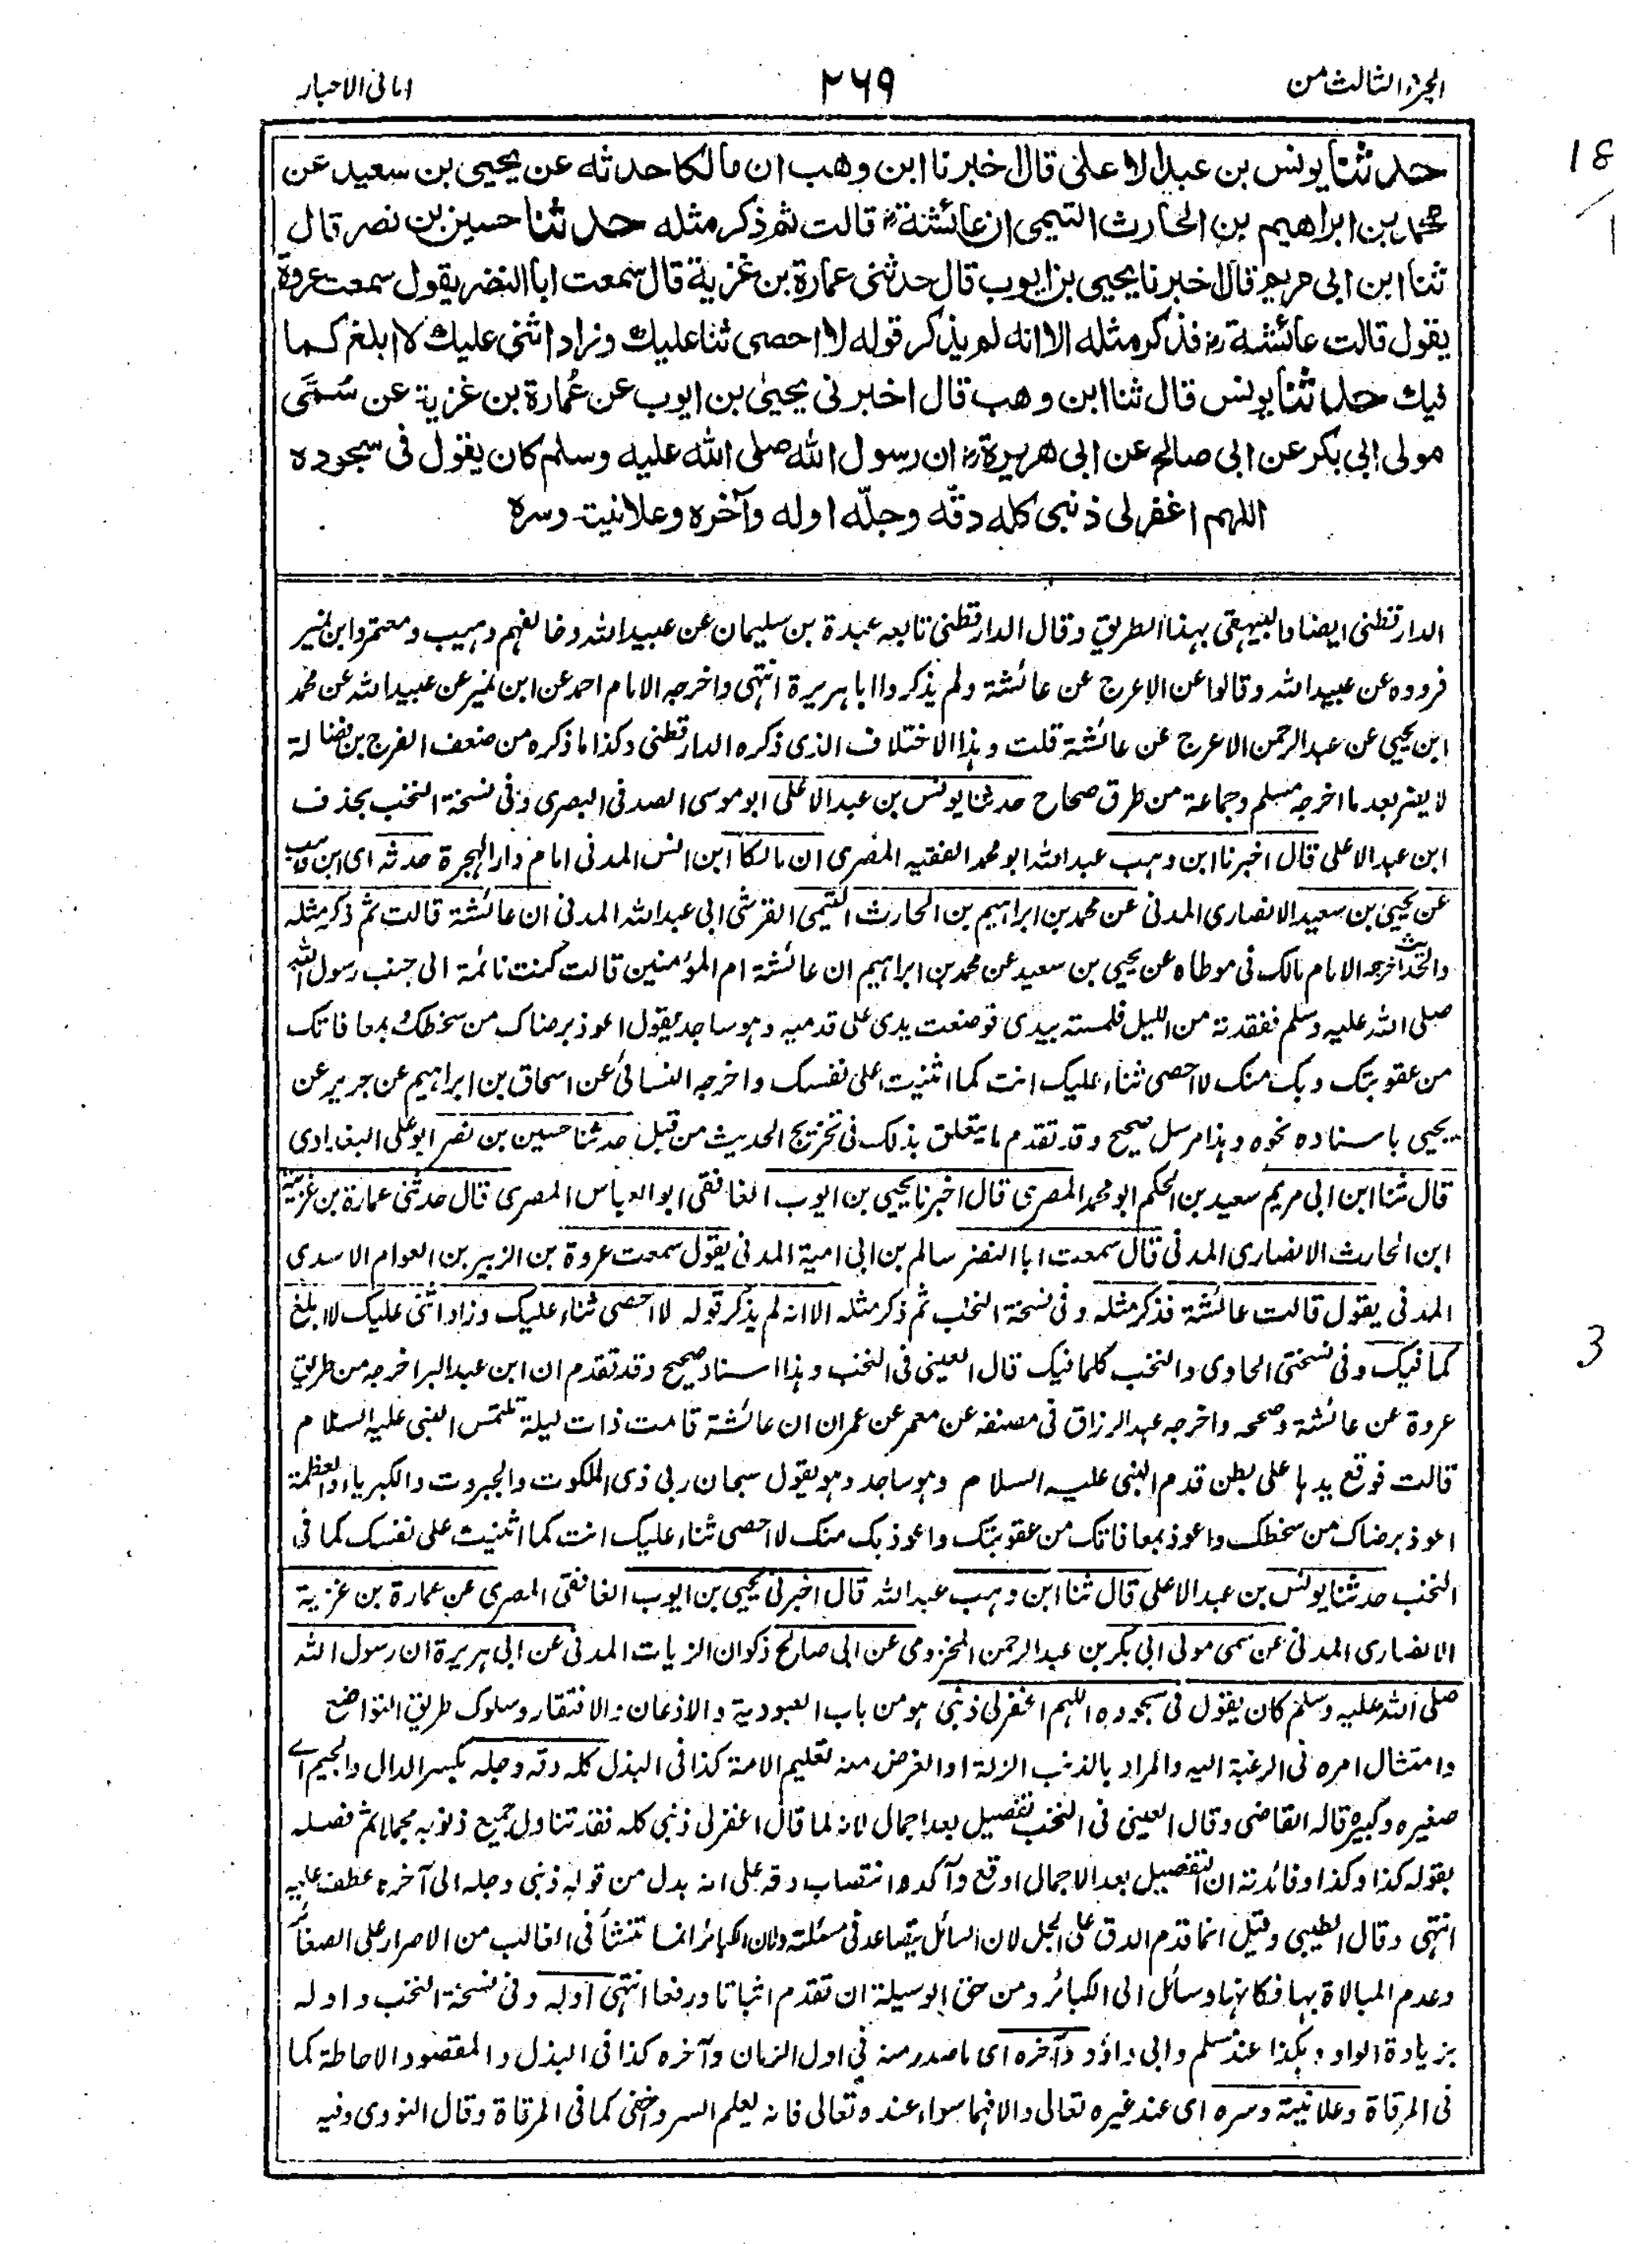 الجزء الثالث من
٢٦٩
امانی الاحبار
حدثنا يونس بن عبد الاعلى قال اخبرنا ابن وهب ان مالكا حدثه عن يحيى بن سعيد عن
محمد بن ابراهيم بن الحارث التيمى ان عائشة رض قالت ثم ذكر مثله حدثنا حسين بن نصر قال
ثنا ابن ابى مريم قال اخبرنا يحيى بن ايوب قال حدثنى عمارة بن غزية قال سمعت ابا النضر يقول سمعت عروة
يقول قالت عائشة رض فذكر مثله الا انه لم يذكر قوله لا احصى ثنا عليك وزاد اثنى عليك لا ابلغ كما
فيك حدثنا يونس قال ثنا ابن وهب قال اخبرنى يحيى بن ايوب عن عُمارة بن غزية عن سُمَّى
مولى ابى بكر عن ابى صالح عن ابى هريرة رض ان رسول الله صلى الله عليه وسلم كان يقول فى سجوده
اللهم اغفر لى ذنبى كله دقّه وجلّه اوله وآخره وعلانيته وسره
الدارقطنى ايضا والبيهقى بهذا الطريق وقال الدارقطنى تابعه عبدة بن سليمان عن عبيد الله وخالفهم وهيب ومعتمر وابن نمير
فرووه عن عبيد الله وقالوا عن الاعرج عن عائشة ولم يذكروا ابا هريرة انتهى واخرجه الامام احمد عن ابن نمير عن عبيد الله عن محمد
ابن يحيى عن عبد الرحمن الاعرج عن عائشة قلت وهذا الاختلاف الذى ذكره الدارقطنى وكذا ما ذكره من ضعف الفرج بن فضالة
لا يضر بعد ما اخرجه مسلم وجماعة من طرق صحاح حدثنا يونس بن عبد الاعلى ابو موسى الصدفى البصرى وفى نسخة النخب بحذف
ابن عبد الاعلى قال اخبرنا ابن وهب عبد الله ابو محمد الفقيه المصرى ان مالكا ابن انس المدنى امام دار الهجرة حدثه اى ابن وهب
عن يحيى بن سعيد الانصارى المدنى عن محمد بن ابراهيم بن الحارث التيمى القرشى ابى عبد الله المدنى ان عائشة قالت ثم ذكر مثله
والحديث اخرجه الامام مالك فى موطاه عن يحيى بن سعيد عن محمد بن ابراهيم ان عائشة ام المؤمنين قالت كنت نائمة الى جنب رسول الله
صلى الله عليه وسلم ففقدته من الليل فلمسته بيدى فوضعت يدى على قدميه وهو ساجد يقول اعوذ برضاك من سخطك وبمعافاتك
من عقوبتك وبك منك لا احصى ثناء عليك انت كما اثنيت على نفسك واخرجه النسائى عن اسحاق بن ابراهيم عن جرير عن
يحيى باسناده نحوه وهذا مرسل صحيح وقد تقدم ما يتعلق بذلك فى تخريج الحديث من قبل حدثنا حسين بن نصر ابو على البغدادى
قال ثنا ابن ابى مريم سعيد بن الحكم ابو محمد المصرى قال اخبرنا يحيى بن ايوب الغافقى ابو العباس المصرى قال حدثنى عمارة بن غزية
ابن الحارث الانصارى المدنى قال سمعت ابا النضر سالم بن ابى امية المدنى يقول سمعت عروة بن الزبير بن العوام الاسدى
المدنى يقول قالت عائشة فذكر مثله وفى نسخة النخب ثم ذكر مثله الا انه لم يذكر قوله لا احصى ثناء عليك وزاد اثنى عليك لا ابلغ
كما فيك وفى نسختى الحاوى والنخب كلما فيك قال العينى فى النخب وهذا اسناد صحيح وقد تقدم ان ابن عبد البر اخرجه من طريق
عروة عن عائشة وصححه واخرجه عبد الرزاق فى مصنفه عن معمر عن عمران ان عائشة قامت ذات ليلة تلتمس النبى عليه السلام
قالت فوقع يدها على بطن قدم النبى عليه السلام وهو ساجد وهو يقول سبحان ربى ذى الملكوت والجبروت والكبرياء والعظمة
اعوذ برضاك من سخطك واعوذ بمعافاتك من عقوبتك واعوذ بك منك لا احصى ثناء عليك انت كما اثنيت على نفسك كما فى
النخب حدثنا يونس بن عبد الاعلى قال ثنا ابن وهب عبد الله قال اخبرنى يحيى بن ايوب الغافقى المصرى عن عمارة بن غزية
الانصارى المدنى عن سمى مولى ابى بكر بن عبد الرحمن المخزومى عن ابى صالح ذكوان الزيات المدنى عن ابى هريرة ان رسول الله
صلى الله عليه وسلم كان يقول فى سجوده اللهم اغفر لى ذنبى هو من باب العبودية والاذعان والافتقار وسلوك طريق التواضع
وامتثال امره فى الرغبة اليه والمراد بالذنب الزلة او الغرض منه تعليم الامة كذا فى البذل كله دقه وجله بكسر الدال والجيم اے
صغيره وكبيره قاله القاضى وقال العينى فى النخب تفصيل بعد اجمال لانه لما قال اغفر لى ذنبى كله فقد تناول جميع ذنوبه مجملا ثم فصله
بقوله كذا وكذا وفائدته ان التفصيل بعد الاجمال اوقع وآكد وانتصاب دقه على انه بدل من قوله ذنبى وجله الى آخره عطف عليه
انتهى وقال الطيبى وقيل انما قدم الدق على الجل لان السائل يتصاعد فى مسئلته ولان الكبائر انما تنشأ فى الغالب من الاصرار على الصغائر
وعدم المبالاة بها فكانها وسائل الى الكبائر ومن حق الوسيلة ان تقدم اثباتا ورفعا انتهى اوله وفى نسخة النخب واوله
بزيادة الواو وهكذا عند مسلم وابى داؤد وآخره اى ما صدر منه فى اول الزمان وآخره كذا فى البذل والمقصود الاحاطة كما
فى المرقاة وعلانيته وسره اى عند غيره تعالى والا فهما سواء عنده تعالى فانه يعلم السر واخفى كما فى المرقاة وقال النووى وفيه
18
1
3